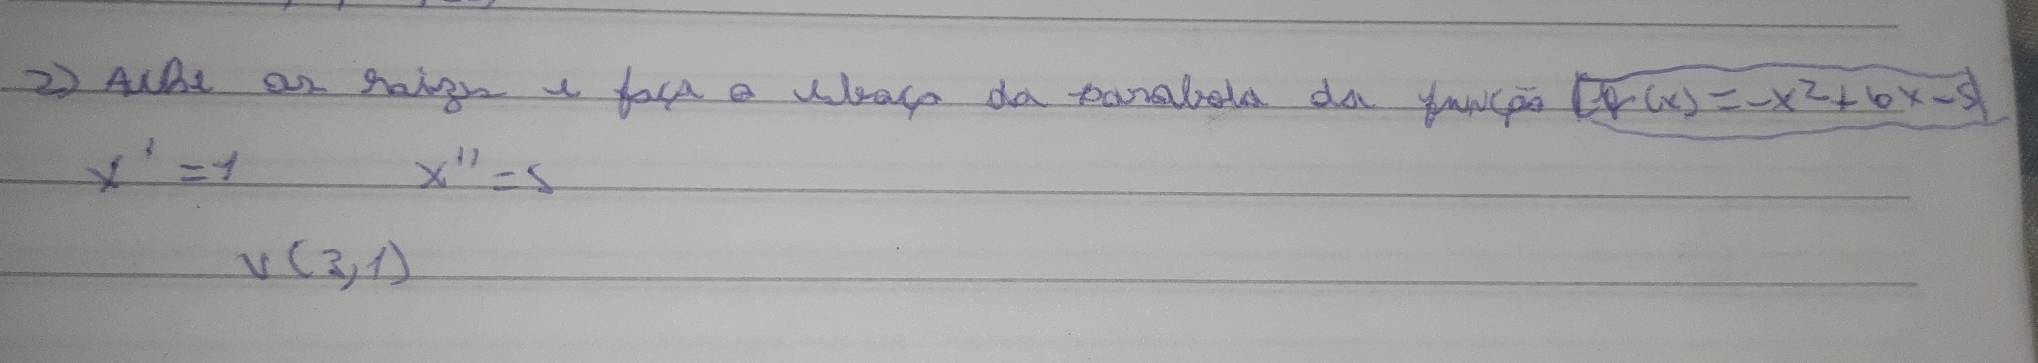 2) Ache as raizes e faça o esboço da parabola da função f(x) = -x²+6x-5
x' = 1 x'' = 5
V (3,1)